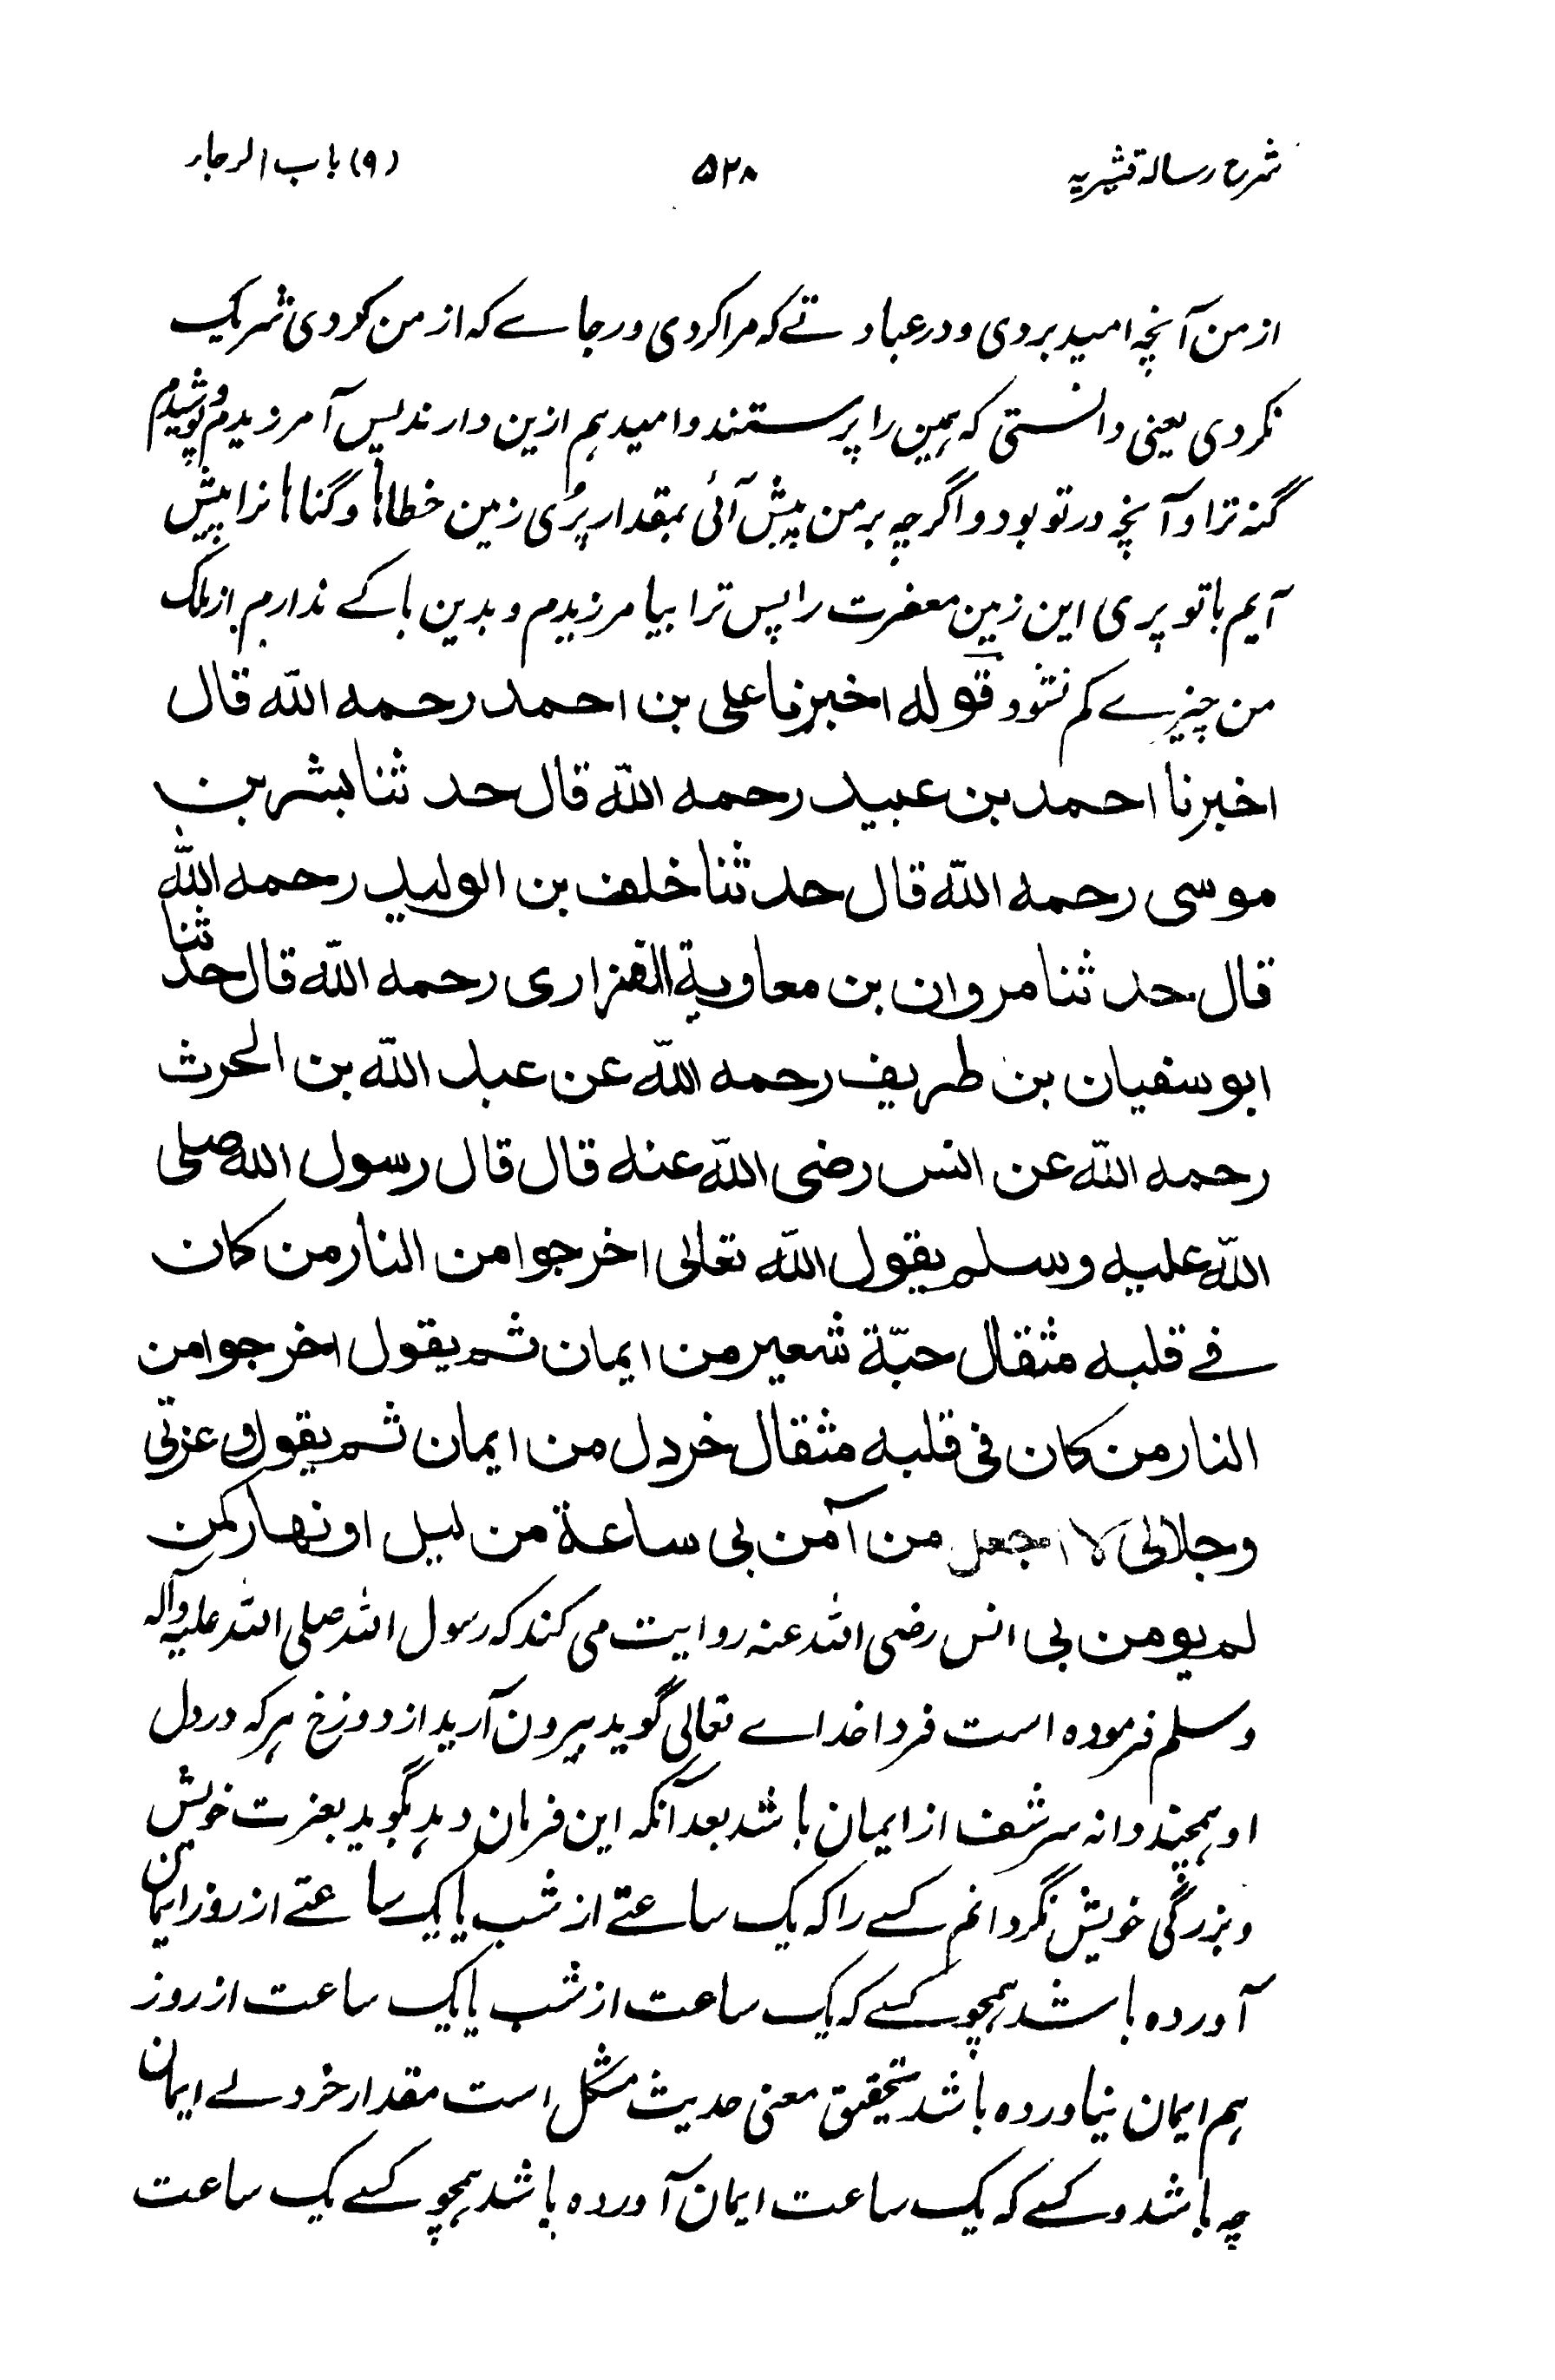 شرح رسالة قشیریه ۵۲۸ (۹) باب الرجاء
از من آنچه امید بردی و در عبادتے که مرا کردی و رجاے که از من کردی شریک
نکردی یعنی دانستی که همین را پرستند و امید هم ازین دارند پس آمرزیدم و پوشیدم
گنه ترا و آنچه در تو بود و اگرچه بر من پیش آئی بمقدار پُری زمین خطاها و گناهانرا پیش
آیم با تو پری این زمین مغفرت را پس ترا بیامرزیدم و بدین باکے ندارم از ملک
من چیزے کم نشود قوله اخبرنا علی بن احمد رحمه اللّه قال
اخبرنا احمد بن عبید رحمه اللّه قال حدثنا بشر بن
موسی رحمه اللّه قال حدثنا خلف بن الولید رحمه اللّه
قال حدثنا مروان بن معاویة الفزاری رحمه اللّه قال حدثنا
ابو سفیان بن طریف رحمه اللّه عن عبد اللّه بن الحرث
رحمه اللّه عن انس رضی اللّه عنه قال قال رسول اللّه صلی
اللّه علیه وسلم یقول اللّه تعالی اخرجوا من النار من کان
فے قلبه مثقال حبّة شعیر من ایمان ثم یقول اخرجوا من
النار من کان فی قلبه مثقال خردل من ایمان ثم یقول و عزتی
وجلالی لا اجعل من آمن بی ساعة من لیل او نهار کمن
لم یومن بی انس رضی اللّه عنه روایت می کند که رسول اللّه صلی اللّه علیه وآله
وسلم فرموده است فردا خداے تعالی گوید بیرون آرید از دوزخ هرکه در دل
او همچند دانه سرشف از ایمان باشد بعد آنکه این فرمان دهد بگوید بعزت خویش
و بزرگی خویش نگردانم کسے را که یک ساعتے از شب یا یک ساعتے از روز ایمان
آورده باشد همچو کسے که یک ساعت از شب یا یک ساعت از روز
هم ایمان نیاورده باشد تحقیق معنی حدیث مشکل است مقدار خردلے ایمان
چه باشد و کسے که یک ساعت ایمان آورده باشد همچو کسے یک ساعت